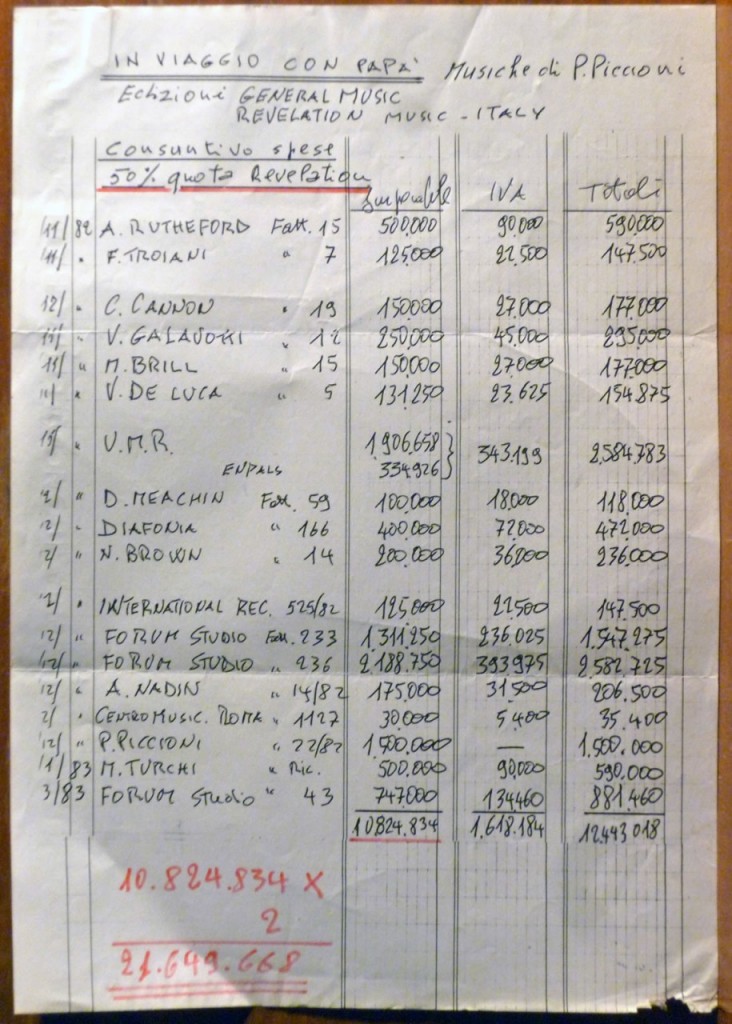 IN VIAGGIO CON PAPA' Musiche di P. Piccioni
Edizioni GENERAL MUSIC
REVELATION MUSIC - ITALY
Consuntivo spese
50% quota Revelation
Imponibile IVA Totali
11/82 A. RUTHEFORD Fatt. 15 500.000 90.000 590.000
11/ " F. TROIANI " 7 125.000 22.500 147.500
12/ " C. CANNON " 19 150.000 27.000 177.000
11/ " V. GALAVOTTI " 12 250.000 45.000 295.000
11/ " M. BRILL " 15 150.000 27.000 177.000
11/ " V. DE LUCA " 5 131.250 23.625 154.875
" U.M.R. 1.906.658 } 343.199 2.584.783
ENPALS 334.926
" D. MEACHIN Fatt. 59 100.000 18.000 118.000
" DIAFONIA " 166 400.000 72.000 472.000
" N. BROWN " 14 200.000 36.000 236.000
" INTERNATIONAL REC. 525/82 125.000 22.500 147.500
12/ " FORUM STUDIO Fatt. 233 1.311.250 236.025 1.547.275
12/ " FORUM STUDIO " 236 2.188.750 393.975 2.582.725
12/ " A. NADIN " 14/82 175.000 31.500 206.500
" CENTRO MUSIC. ROMA " 1127 30.000 5.400 35.400
12/ " P. PICCIONI " 22/82 1.500.000 — 1.500.000
1/83 M. TURCHI " Ric. 500.000 90.000 590.000
3/83 FORUM Studio " 43 747.000 134.460 881.460
10.824.834 1.618.184 12.443.018
10.824.834 X
2
21.649.668